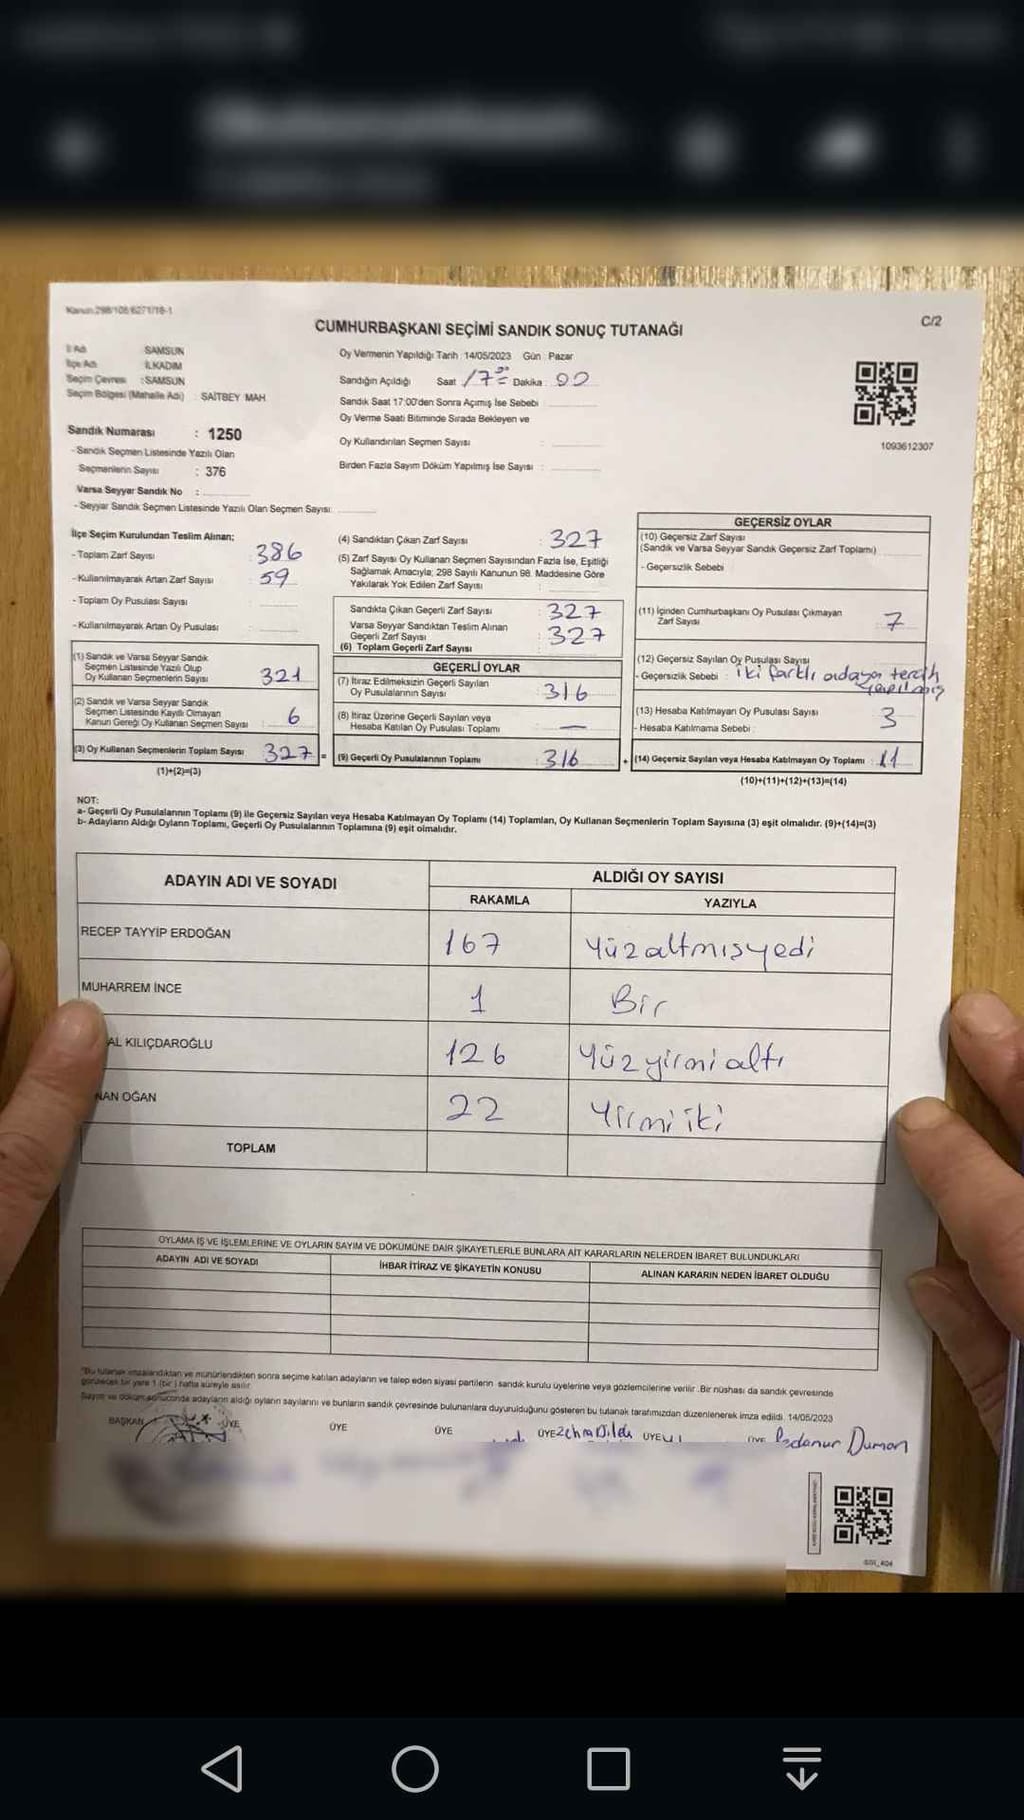 Kanun:298/105/6271/16-1
C/2
CUMHURBAŞKANI SEÇİMİ SANDIK SONUÇ TUTANAĞI
İl Adı SAMSUN
İlçe Adı İLKADIM
Seçim Çevresi :SAMSUN
Seçim Bölgesi (Mahalle Adı) : SAİTBEY MAH
Sandık Numarası : 1250
- Sandık Seçmen Listesinde Yazılı Olan
Seçmenlerin Sayısı : 376
Varsa Seyyar Sandık No :
- Seyyar Sandık Seçmen Listesinde Yazılı Olan Seçmen Sayısı:
Oy Vermenin Yapıldığı Tarih :14/05/2023 Gün : Pazar
Sandığın Açıldığı Saat 17:00 Dakika : 00
Sandık Saat 17:00'den Sonra Açımış İse Sebebi :
Oy Verme Saati Bitiminde Sırada Bekleyen ve
Oy Kullandırılan Seçmen Sayısı :
Birden Fazla Sayım Döküm Yapılmış İse Sayısı :
1093612307
İlçe Seçim Kurulundan Teslim Alınan;
- Toplam Zarf Sayısı : 386
- Kullanılmayarak Artan Zarf Sayısı : 59
- Toplam Oy Pusulası Sayısı :
- Kullanılmayarak Artan Oy Pusulası :
(1) Sandık ve Varsa Seyyar Sandık
Seçmen Listesinde Yazılı Olup
Oy Kullanan Seçmenlerin Sayısı : 321
(2) Sandık ve Varsa Seyyar Sandık
Seçmen Listesinde Kayıtlı Olmayan
Kanun Gereği Oy Kullanan Seçmen Sayısı : 6
(3) Oy Kullanan Seçmenlerin Toplam Sayısı : 327 =
(1)+(2)=(3)
(4) Sandıktan Çıkan Zarf Sayısı : 327
(5) Zarf Sayısı Oy Kullanan Seçmen Sayısından Fazla İse, Eşitliği
Sağlamak Amacıyla; 298 Sayılı Kanunun 98. Maddesine Göre
Yakılarak Yok Edilen Zarf Sayısı :
Sandıkta Çıkan Geçerli Zarf Sayısı : 327
Varsa Seyyar Sandıktan Teslim Alınan
Geçerli Zarf Sayısı : 327
(6) Toplam Geçerli Zarf Sayısı
GEÇERLİ OYLAR
(7) İtiraz Edilmeksizin Geçerli Sayılan
Oy Pusulalarının Sayısı : 316
(8) İtiraz Üzerine Geçerli Sayılan veya
Hesaba Katılan Oy Pusulası Toplamı : —
(9) Geçerli Oy Pusulalarının Toplamı : 316 +
GEÇERSİZ OYLAR
(10) Geçersiz Zarf Sayısı
(Sandık ve Varsa Seyyar Sandık Geçersiz Zarf Toplamı) :
- Geçersizlik Sebebi :
(11) İçinden Cumhurbaşkanı Oy Pusulası Çıkmayan
Zarf Sayısı : 7
(12) Geçersiz Sayılan Oy Pusulası Sayısı
- Geçersizlik Sebebi : iki farklı adaya tercih
yapılmış
(13) Hesaba Katılmayan Oy Pusulası Sayısı : 3
- Hesaba Katılmama Sebebi :
(14) Geçersiz Sayılan veya Hesaba Katılmayan Oy Toplamı : 11
(10)+(11)+(12)+(13)=(14)
NOT:
a- Geçerli Oy Pusulalarının Toplamı (9) ile Geçersiz Sayılan veya Hesaba Katılmayan Oy Toplamı (14) Toplamları, Oy Kullanan Seçmenlerin Toplam Sayısına (3) eşit olmalıdır. (9)+(14)=(3)
b- Adayların Aldığı Oyların Toplamı, Geçerli Oy Pusulalarının Toplamına (9) eşit olmalıdır.
ADAYIN ADI VE SOYADI
ALDIĞI OY SAYISI
RAKAMLA YAZIYLA
RECEP TAYYİP ERDOĞAN 167 Yüzaltmışyedi
MUHARREM İNCE 1 Bir
AL KILIÇDAROĞLU 126 Yüzyirmialtı
NAN OĞAN 22 Yirmiiki
TOPLAM
OYLAMA İŞ VE İŞLEMLERİNE VE OYLARIN SAYIM VE DÖKÜMÜNE DAİR ŞİKAYETLERLE BUNLARA AİT KARARLARIN NELERDEN İBARET BULUNDUKLARI
ADAYIN ADI VE SOYADI İHBAR İTİRAZ VE ŞİKAYETİN KONUSU ALINAN KARARIN NEDEN İBARET OLDUĞU
"Bu tutanak imzalandıktan ve mühürlendikten sonra seçime katılan adayların ve talep eden siyasi partilerin sandık kurulu üyelerine veya gözlemcilerine verilir. Bir nüshası da sandık çevresinde
görülecek bir yere 1 (bir ) hafta süreyle asılır.
Sayım ve döküm sonucunda adayların aldığı oyların sayılarını ve bunların sandık çevresinde bulunanlara duyurulduğunu gösteren bu tutanak tarafımızdan düzenlenerek imza edildi. 14/05/2023
BAŞKAN ÜYE ÜYE ÜYE ÜYE ÜYE ÜYE Duman